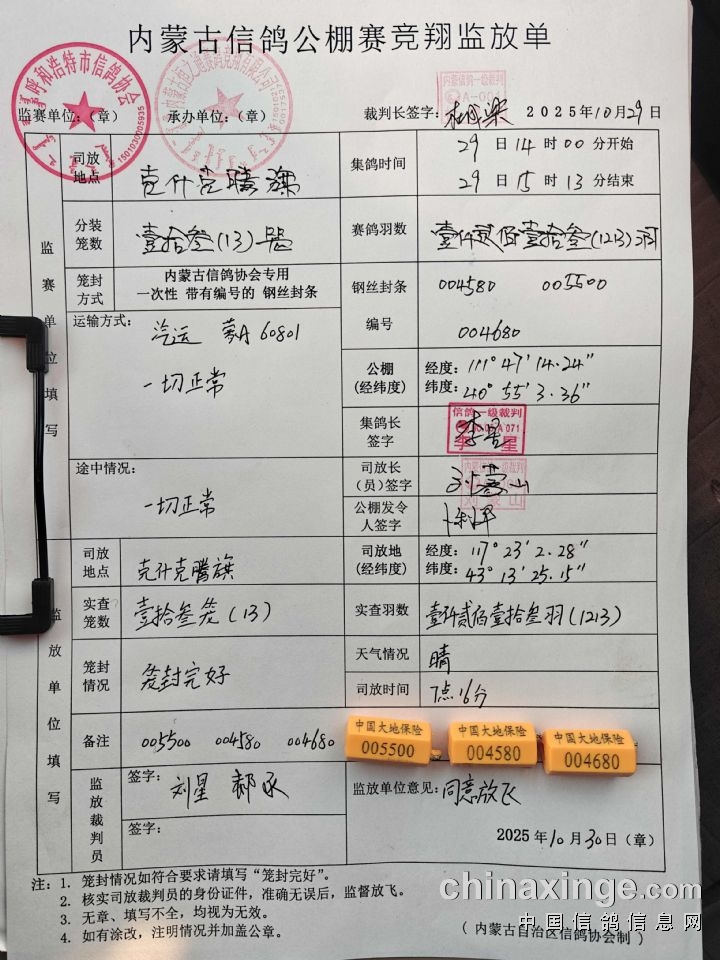 内蒙古信鸽公棚赛竞翔监放单
呼和浩特市信鸽协会
15010300005935
内蒙古信鸽一级裁判
A-001
监赛单位：（章） 承办单位：（章） 裁判长签字： 2025年10月29日
司放地点 克什克腾旗 集鸽时间 29日14时00分开始
29日15时13分结束
分装笼数 壹拾叁(13)笼 赛鸽羽数 壹仟贰佰壹拾叁(1213)羽
监赛单位填写
笼封方式 内蒙古信鸽协会专用
一次性 带有编号的 钢丝封条
钢丝封条 004580 005500
编号 004680
运输方式： 汽运 蒙A60801
一切正常
公棚（经纬度） 经度：111°47′14.24″
纬度：40°55′3.36″
集鸽长签字 信鸽一级裁判
李星
途中情况：
一切正常
司放长（员）签字 刘蒙山
公棚发令人签字
监放单位填写
司放地点 克什克腾旗 司放地（经纬度） 经度：117°23′2.28″
纬度：43°13′25.15″
实查笼数 壹拾叁笼(13) 实查羽数 壹仟贰佰壹拾叁羽(1213)
笼封情况 笼封完好 天气情况 晴
司放时间 7点16分
备注 005500 004580 004680
中国大地保险 中国大地保险 中国大地保险
005500 004580 004680
监放裁判员 签字： 刘星 郝永 监放单位意见：同意放飞
签字：
2025年10月30日（章）
注：1. 笼封情况如符合要求请填写“笼封完好”。
2. 核实司放裁判员的身份证件，准确无误后，监督放飞。
3. 无章、填写不全，均视为无效。
4. 如有涂改，注明情况并加盖公章。
（内蒙古自治区信鸽协会制）
chinaxinge.com
中国信鸽信息网